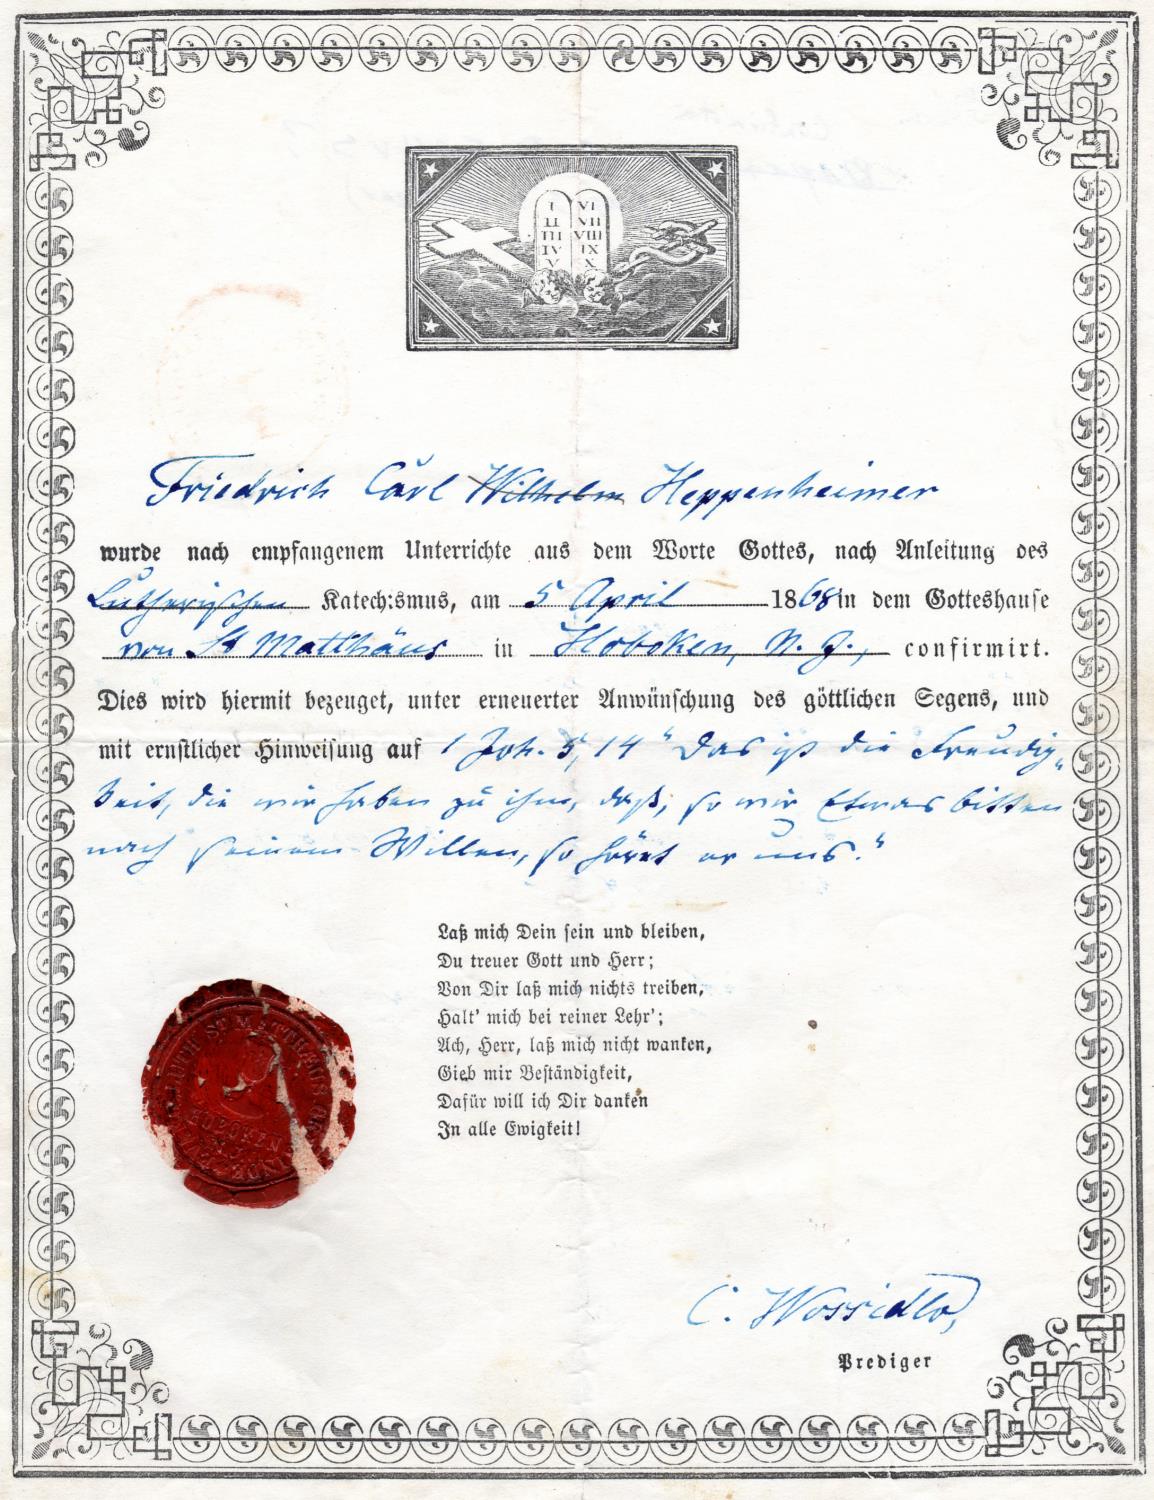 I VI
II VII
III VIII
IV IX
V X
Friedrich Carl Wilhelm Heppenheimer
wurde nach empfangenem Unterrichte aus dem Worte Gottes, nach Anleitung des
Lutherischen Katech:smus, am 5 April 1868 in dem Gotteshause
von St Matthäus in Hoboken, N. J., confirmirt.
Dies wird hiermit bezeuget, unter erneuerter Anwünschung des göttlichen Segens, und
mit ernstlicher Hinweisung auf 1 Joh. 5, 14 "Das ist die Freudig„
keit, die wir haben zu ihm, daß, so wir Etwas bitten
nach seinem Willen, so höret er uns."
Laß mich Dein sein und bleiben,
Du treuer Gott und Herr;
Von Dir laß mich nichts treiben,
Halt' mich bei reiner Lehr';
Ach, Herr, laß mich nicht wanken,
Gieb mir Beständigkeit,
Dafür will ich Dir danken
In alle Ewigkeit!
LUTH. ST. MATTHAEUS
HOBOKEN
C. Wossidlo,
Prediger